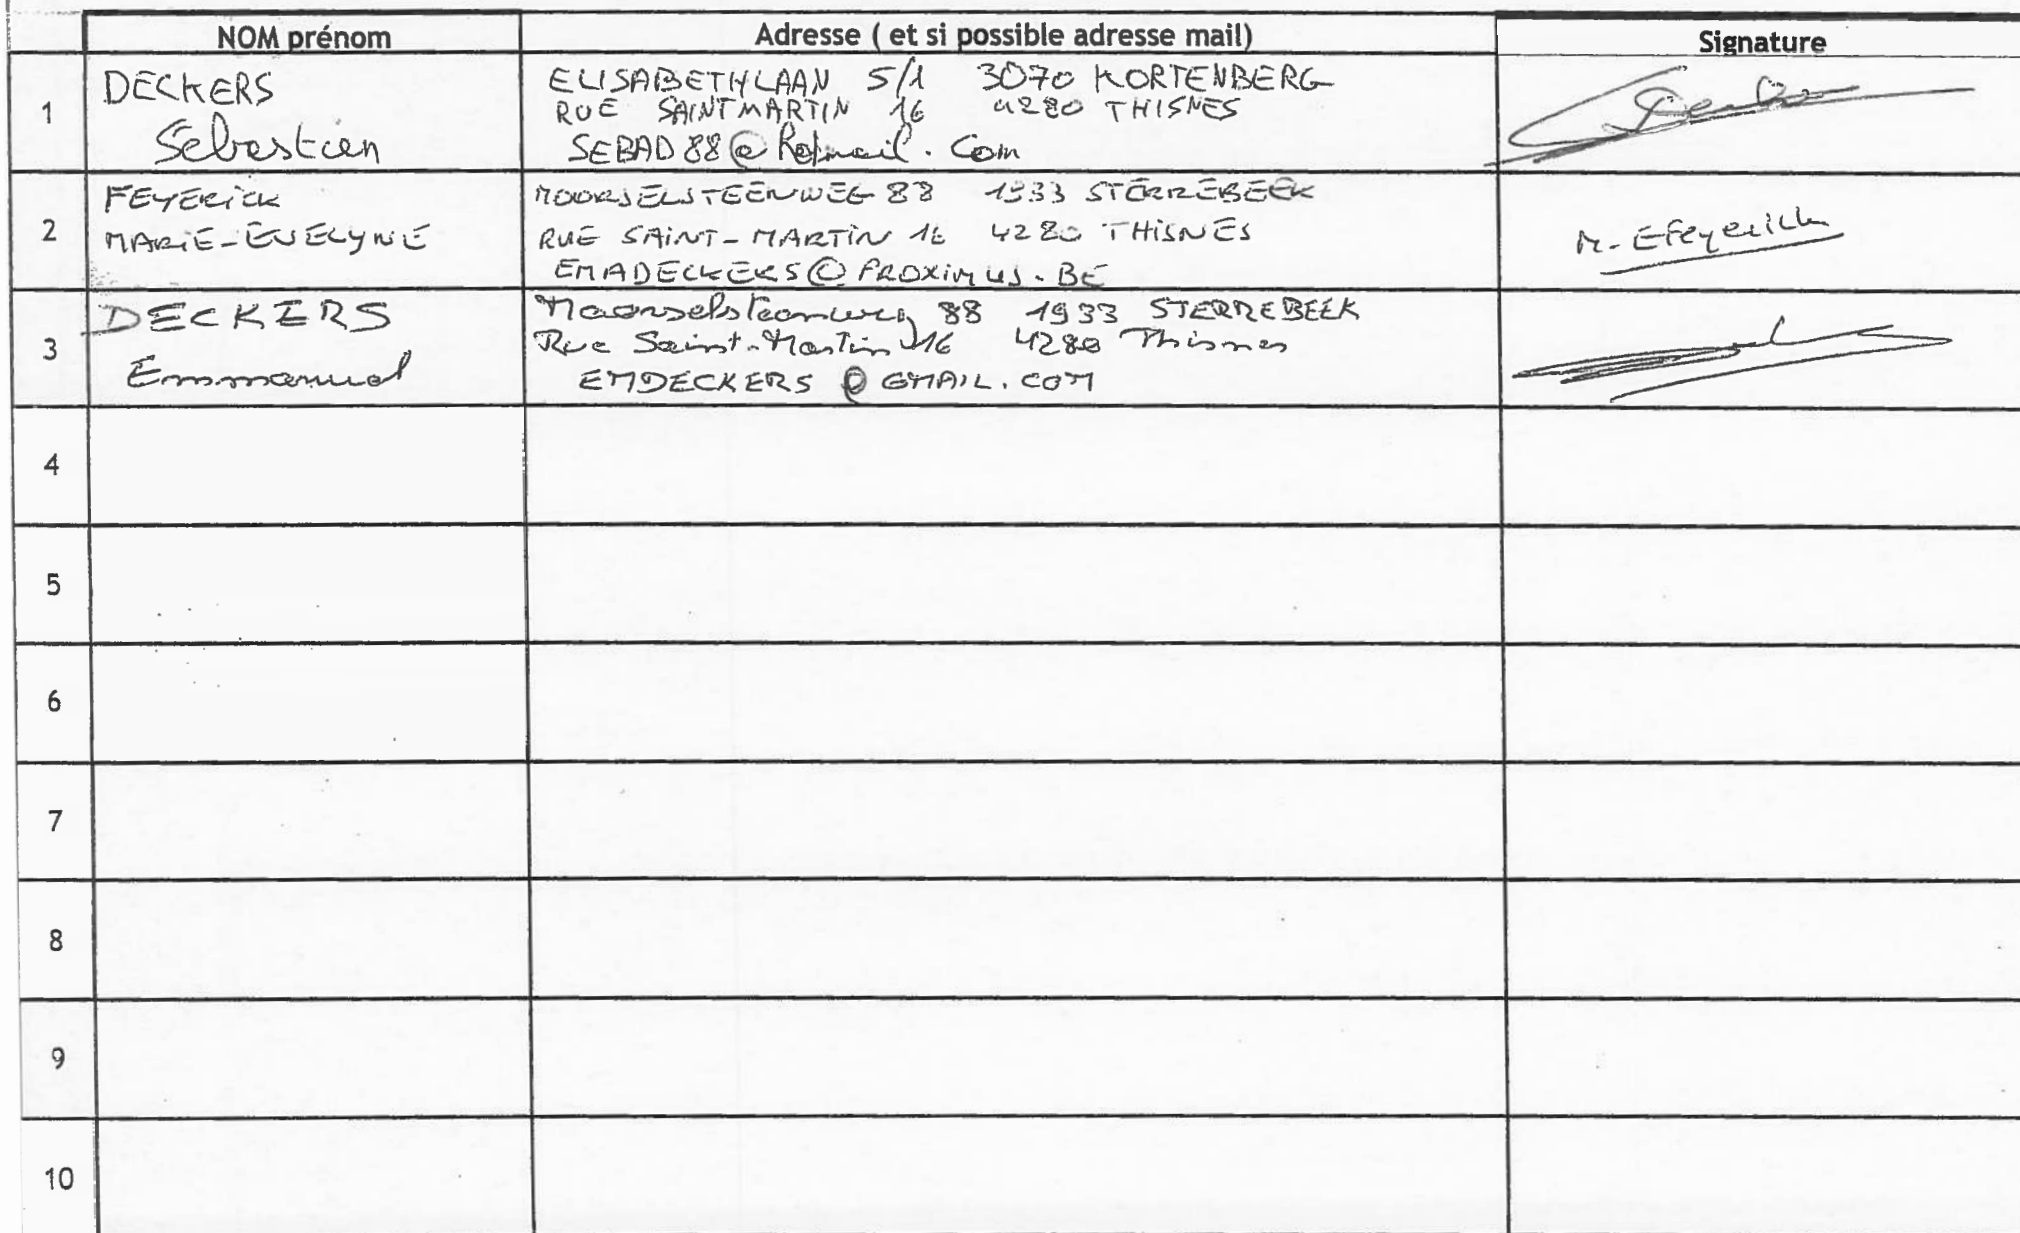 NOM prénom Adresse ( et si possible adresse mail) Signature
1
DECKERS
Sébastien
ELISABETHLAAN 5/1 3070 KORTENBERG
RUE SAINT MARTIN 16 4280 THISNES
SEBAD88@hotmail.Com
2
FEYERICK
MARIE-EVELYNE
MOORSELSTEENWEG 88 1933 STERREBEEK
RUE SAINT-MARTIN 16 4280 THISNES
EMADECKERS@PROXIMUS.BE
M-EFeyerick
3
DECKERS
Emmanuel
Moorselsteenweg 88 1933 STERREBEEK
Rue Saint-Martin 16 4280 Thisnes
EMDECKERS@GMAIL.COM
4
5
6
7
8
9
10